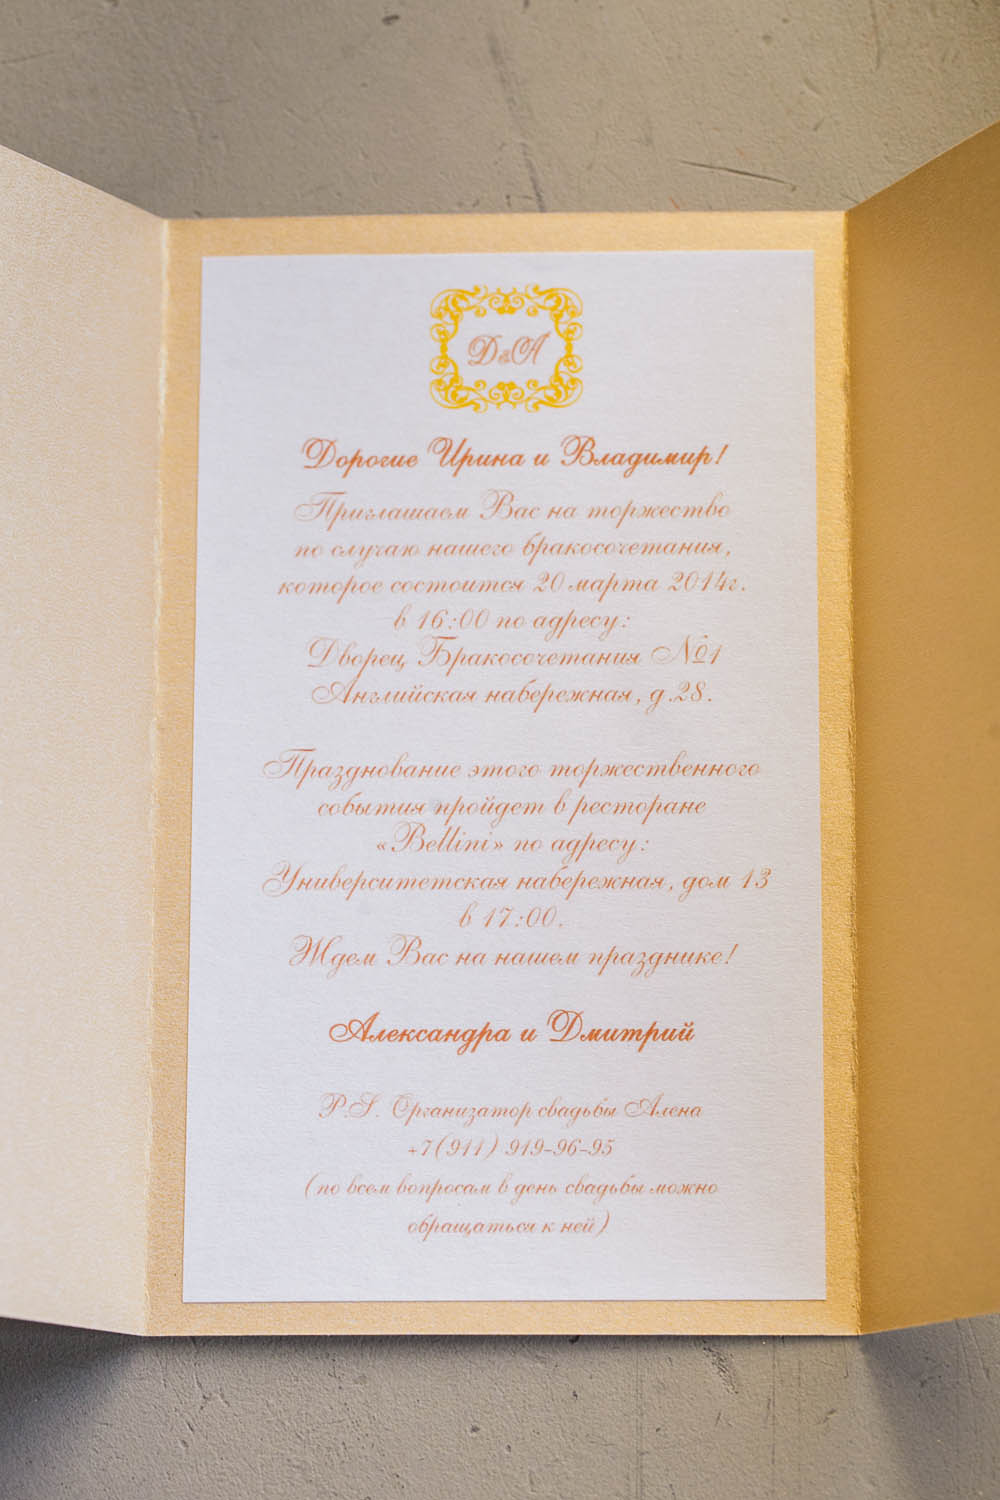 D&A
Дорогие Ирина и Владимир!
Приглашаем Вас на торжество
по случаю нашего бракосочетания,
которое состоится 20 марта 2014г.
в 16:00 по адресу:
Дворец Бракосочетания №1
Английская набережная, д.28.
Празднование этого торжественного
события пройдет в ресторане
«Bellini» по адресу:
Университетская набережная, дом 13
в 17:00.
Ждем Вас на нашем празднике!
Александра и Дмитрий
P.S. Организатор свадьбы Алена
+7(911) 919-96-95
(по всем вопросам в день свадьбы можно
обращаться к ней)